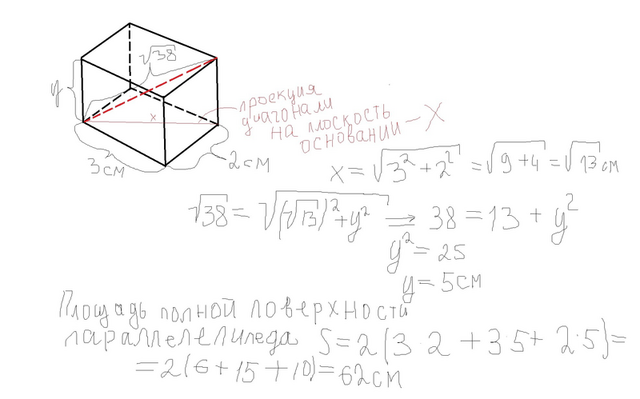 √38
y
x
3см
2см
проекция
диагонали
на плоскость
основании – X
x = √3²+2² = √9+4 = √13 см
√38 = √(√13)²+y² ⇒ 38 = 13 + y²
y² = 25
y = 5см
Площадь полной поверхности
параллелепипеда S = 2(3·2 + 3·5 + 2·5) =
= 2(6 + 15 + 10) = 62см